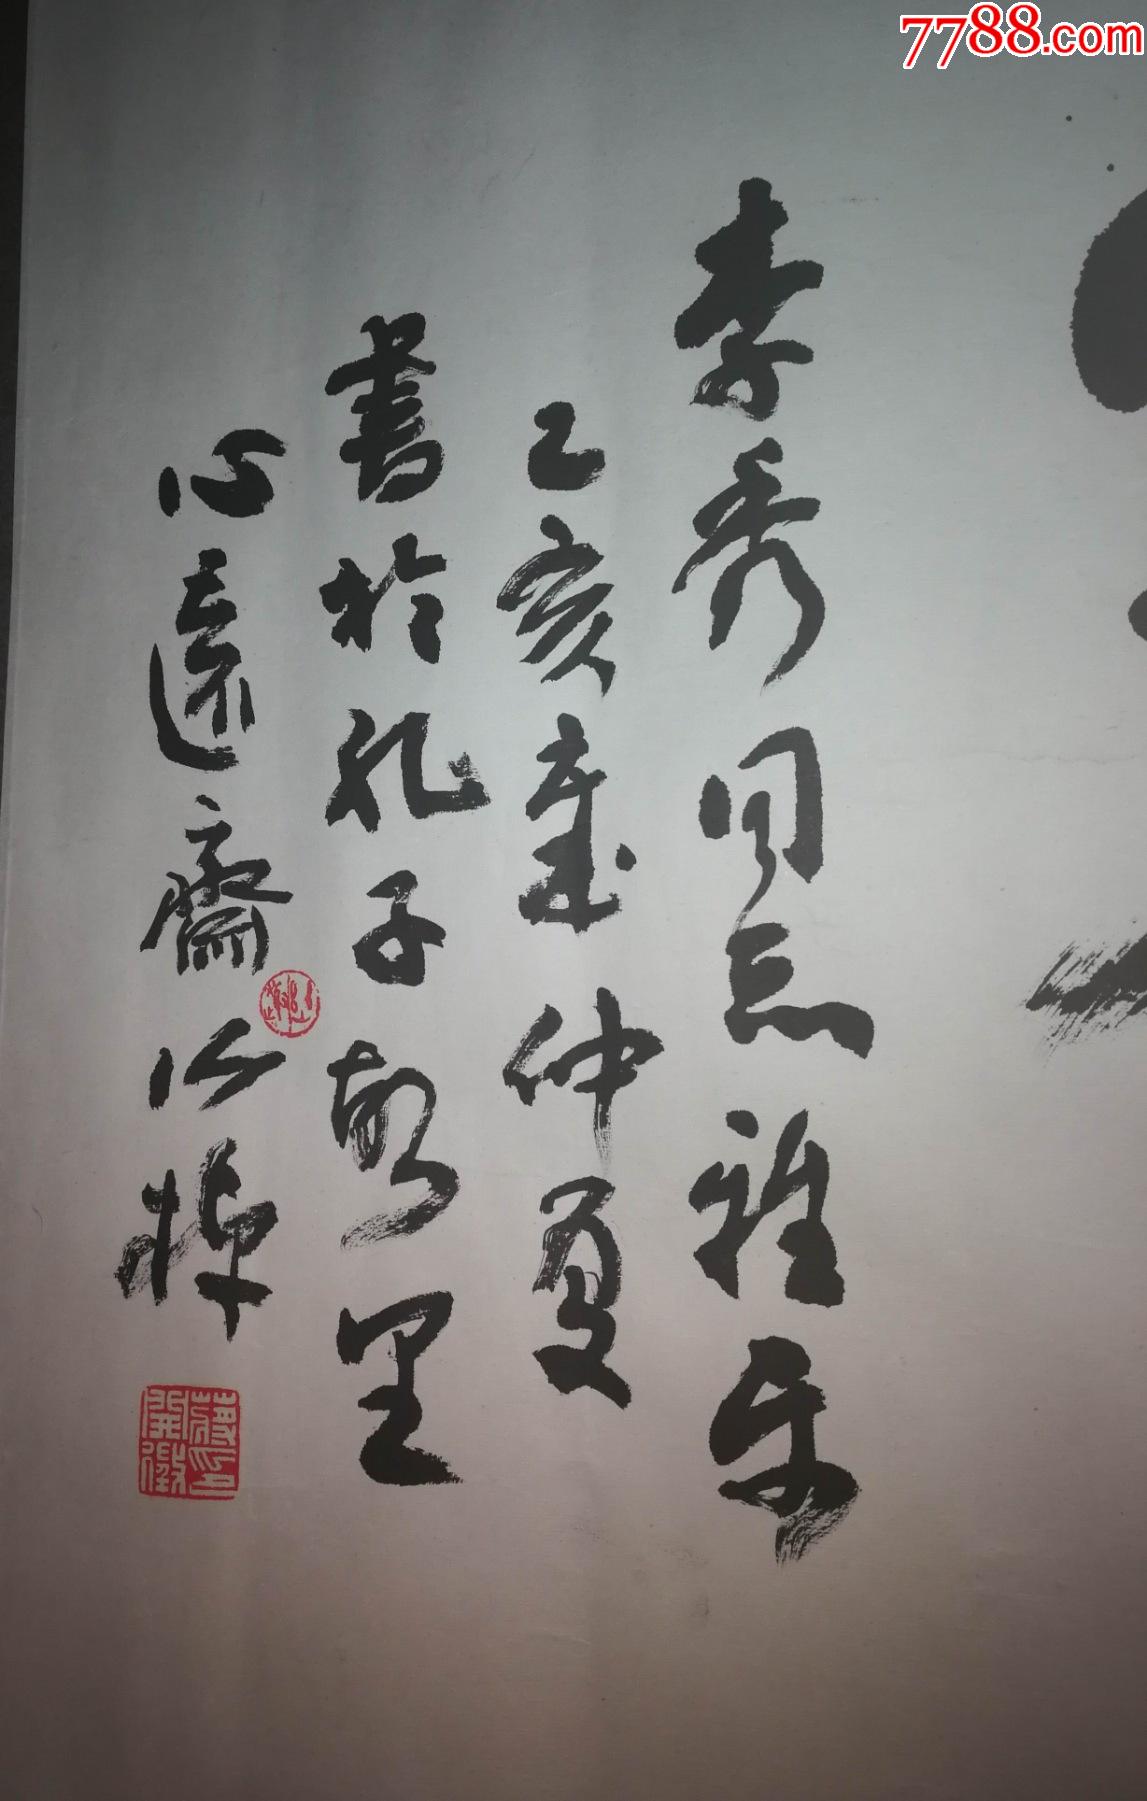 7788.com
李秀同志雅正
乙亥岁仲夏
書於孔子故里
心遠齋